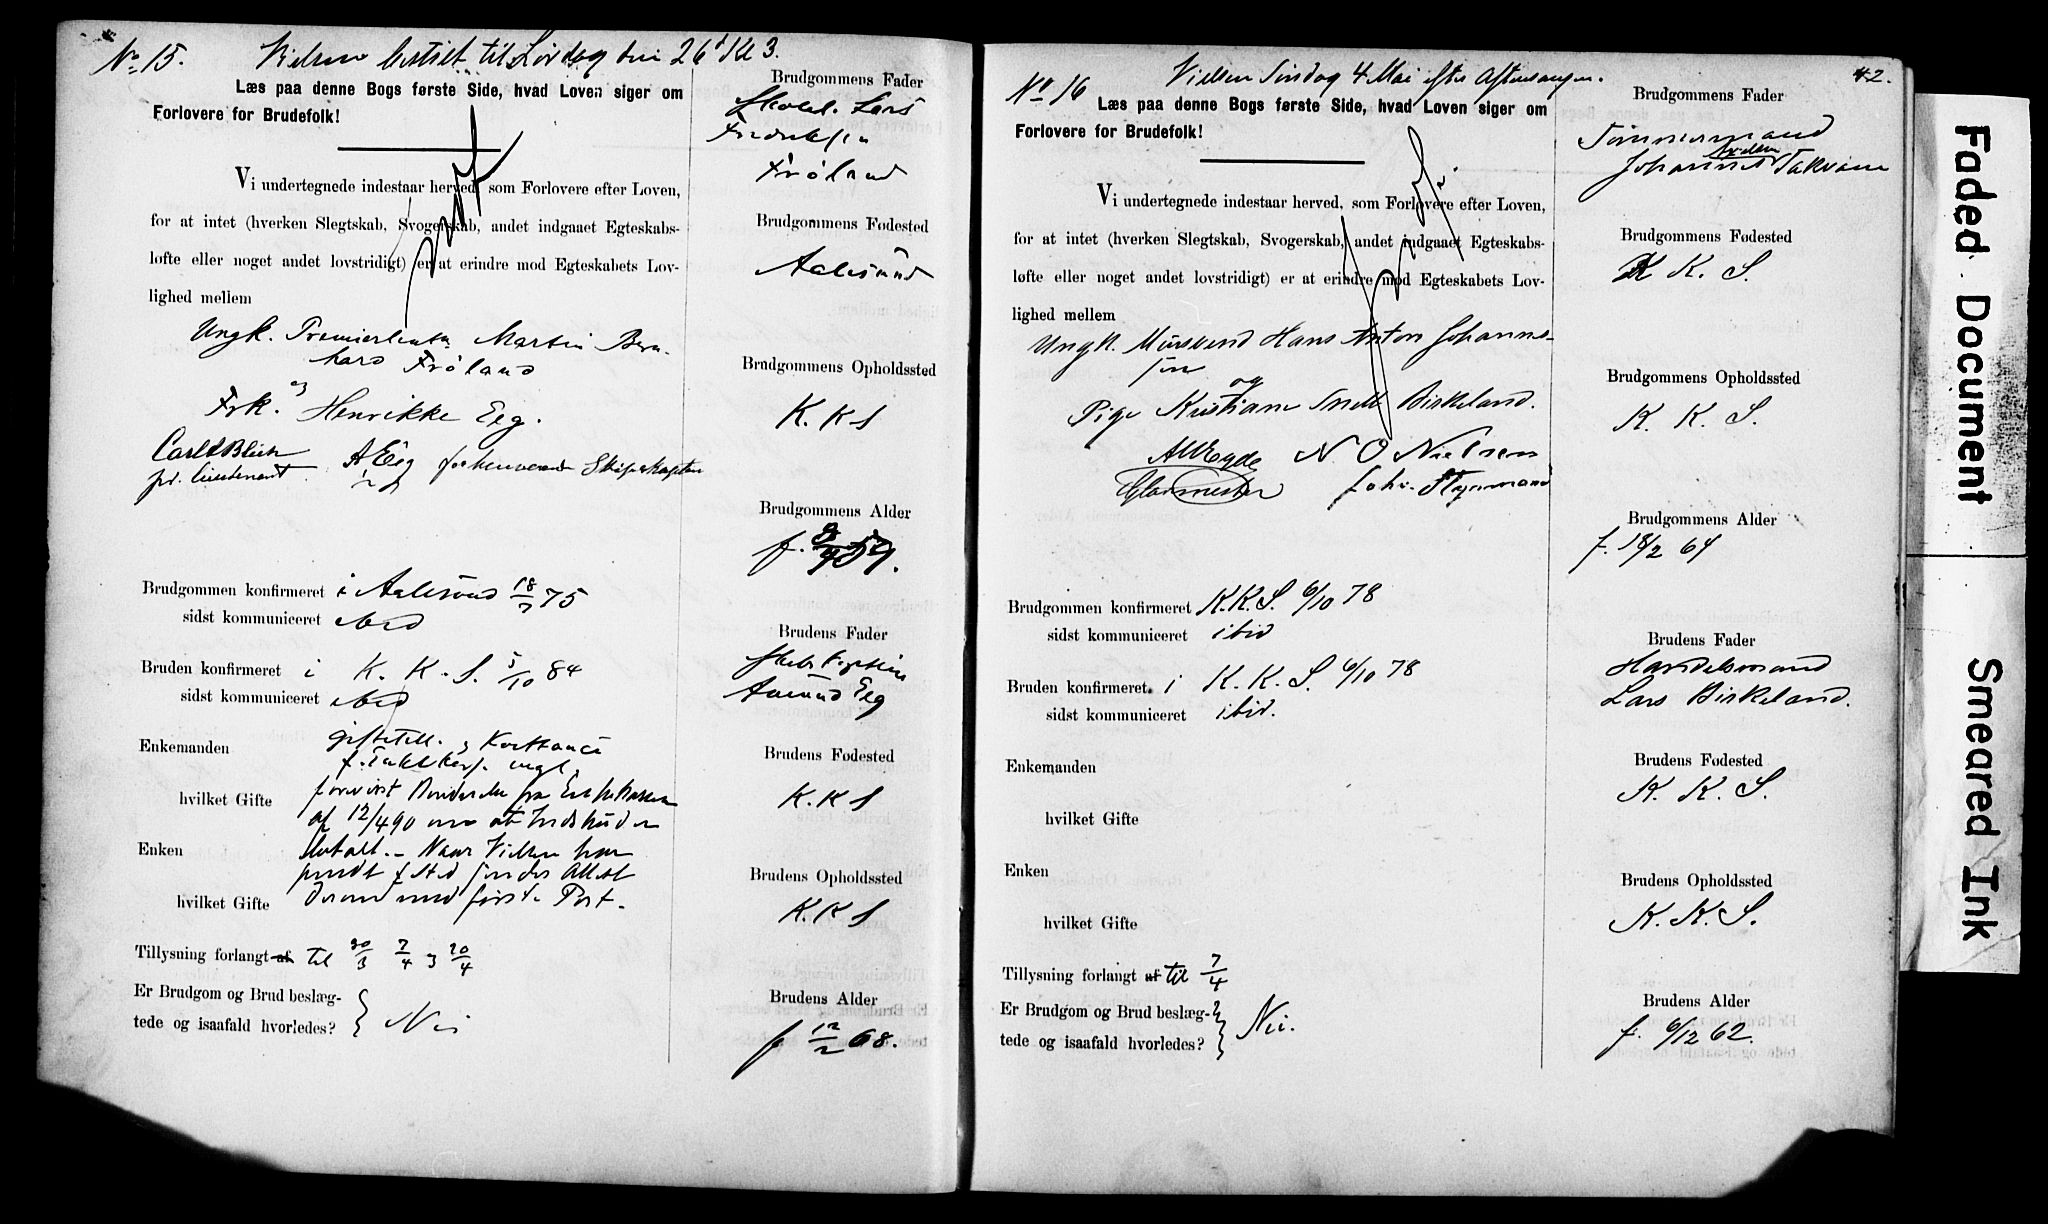 No 15. Vielsen bestilt til Lørdag den 26' Kl 3.
Læs paa denne Bogs første Side, hvad Loven siger om
Forlovere for Brudefolk!
Vi undertegnede indestaar herved, som Forlovere efter Loven,
for at intet (hverken Slegtskab, Svogerskab, andet indgaaet Egteskabs-
løfte eller noget andet lovstridigt) er at erindre mod Egteskabets Lov-
lighed mellem
Ungk. Premierleutn Martin Bern-
hard Frøland
og
Frk. Henrikke Eeg.
Carl Blich A Eeg forhenværende Skibskaptein
pr. lieutenant
Brudgommen konfirmeret i Aalesund 18/7 75
sidst kommuniceret ibid
Bruden konfirmeret i K. K. S. 5/10 84
sidst kommuniceret ibid
Enkemanden
hvilket Gifte
af 12/4 90 om at Indskud er
Enken betalt. - Naar Vielsen har
fundet Sted sendes Attest
hvilket Gifte derom med første Post.
Tillysning forlangt af til 30/3 7/4 og 20/4
Er Brudgom og Brud beslæg-
tede og isaafald hvorledes? } Nei
Brudgommens Fader
Lars
Fredriksen
Frøland
Brudgommens Fødested
Aalesund
Brudgommens Opholdssted
K. K S
Brudgommens Alder
f. 59.
Brudens Fader
Skibskaptein
Amund Eeg
Brudens Fødested
K. K S
Brudens Opholdssted
K. K S
Brudens Alder
f 12/2 68.
42.
No 16 Vielsen Søndag 4 Mai efter Aftensangen.
Læs paa denne Bogs første Side, hvad Loven siger om
Forlovere for Brudefolk!
Vi undertegnede indestaar herved, som Forlovere efter Loven,
for at intet (hverken Slegtskab, Svogerskab, andet indgaaet Egteskabs-
løfte eller noget andet lovstridigt) er at erindre mod Egteskabets Lov-
lighed mellem
Ungk. Mursvend Hans Anton Johannes-
sen
og
Pige Kristiane Snell Birkeland.
N O Nielsen
Glarmester
Brudgommen konfirmeret K. K. S. 6/10 78
sidst kommuniceret ibid
Bruden konfirmeret i K. K. S. 6/10 78
sidst kommuniceret ibid.
Enkemanden
hvilket Gifte
Enken
hvilket Gifte
Tillysning forlangt af til 7/4
Er Brudgom og Brud beslæg-
tede og isaafald hvorledes? } Nei.
Brudgommens Fader
Tømmermand
Johannes Takvam
Brudgommens Fødested
K K. S.
Brudgommens Opholdssted
K. K. S.
Brudgommens Alder
f. 18/2 64
Brudens Fader
Handelsmand
Lars Birkeland.
Brudens Fødested
K. K. S.
Brudens Opholdssted
K. K. S.
Brudens Alder
f. 6/12 62.
Faded Document
Smeared Ink